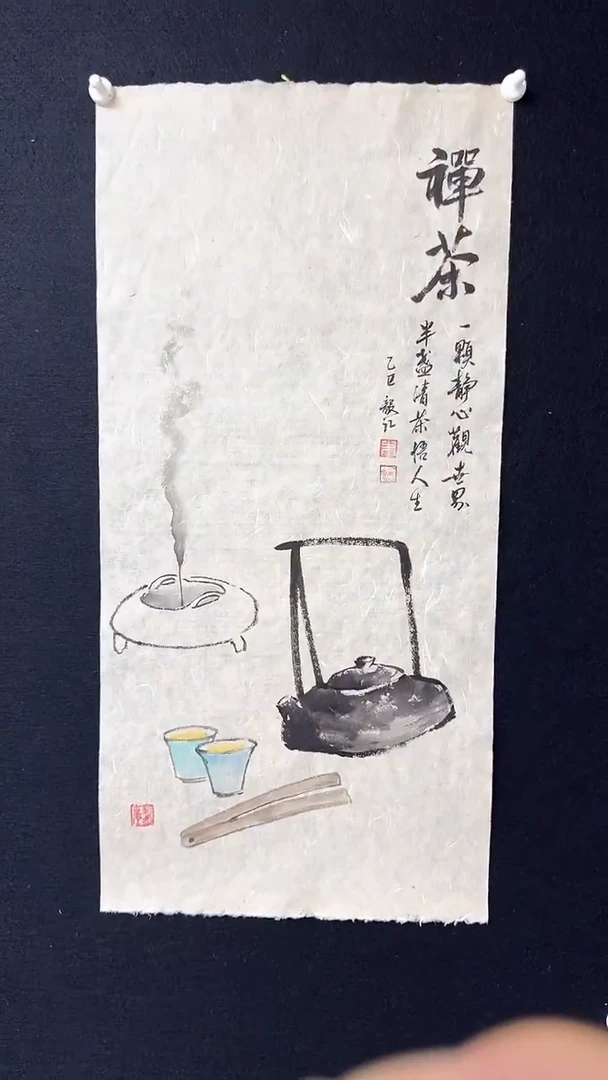 禪茶
一顆静心觀世界
半盏清茶悟人生
乙巳 毅江